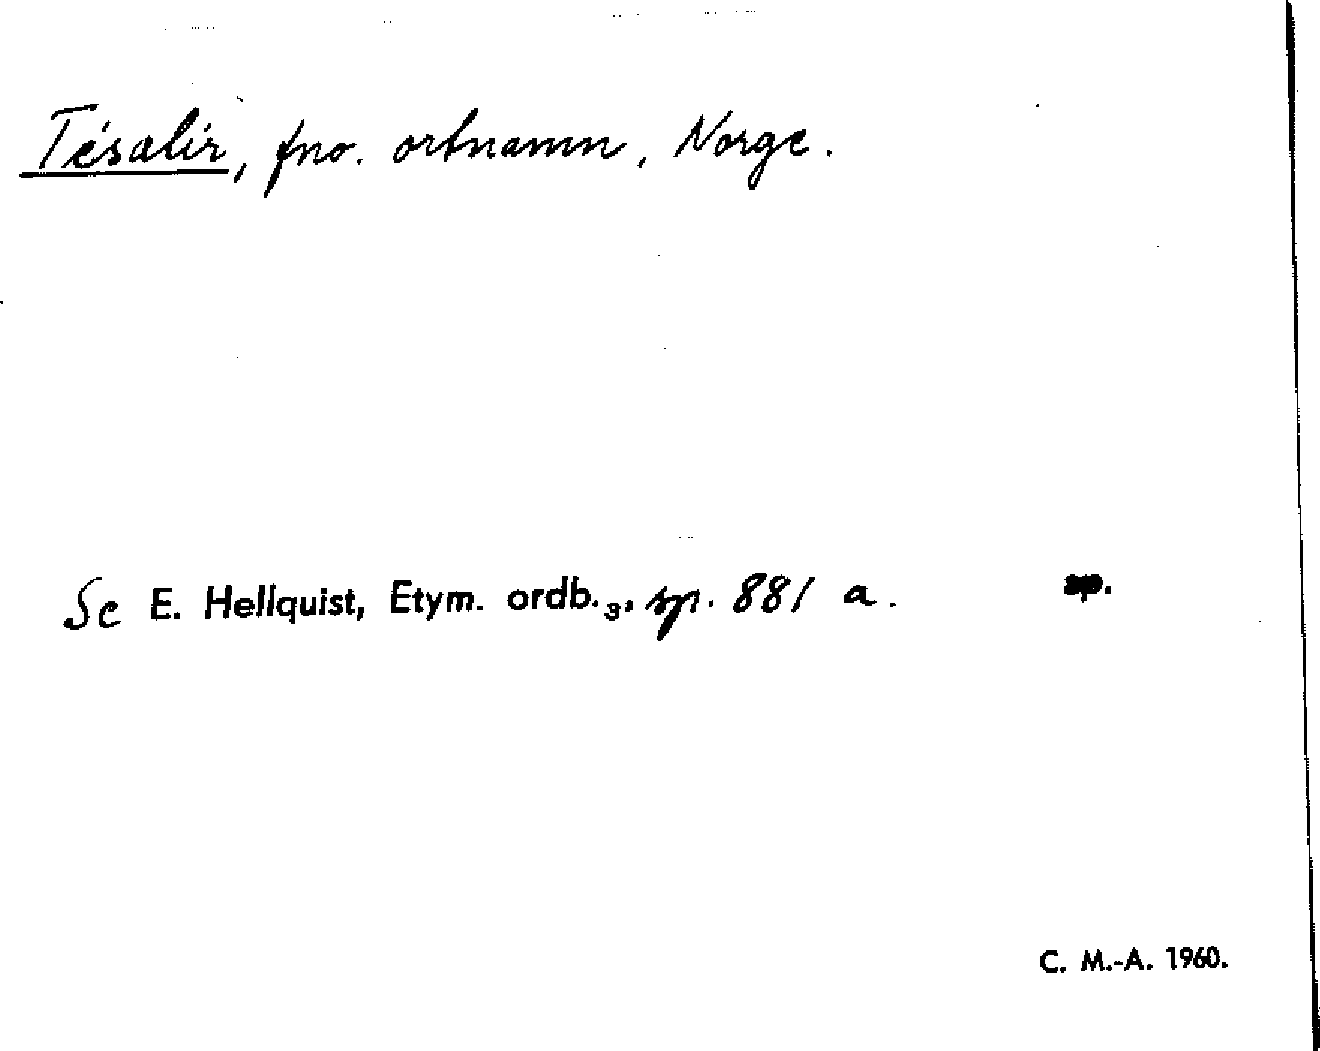 Tésalir, fno. ortnamn, Norge.
Se E. Hellquist, Etym. ordb.₃, sp. 881 a.
C. M.-A. 1960.